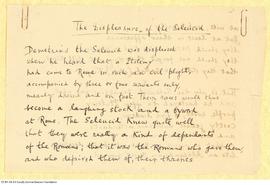 The Displeasure of the Seleucid
Demetrius the Seleucid was displeased
when he heard that a Ptolemy
had come to Rome in such an evil plight,
accompanied by three or four servants only
meanly dressed and on foot. Their race will thus
become a laughing stock and a byword
at Rome. The Seleucid knew quite well
that they were really a kind of dependants
of the Romans; that it was the Romans who gave them
and who deprived them of their thrones